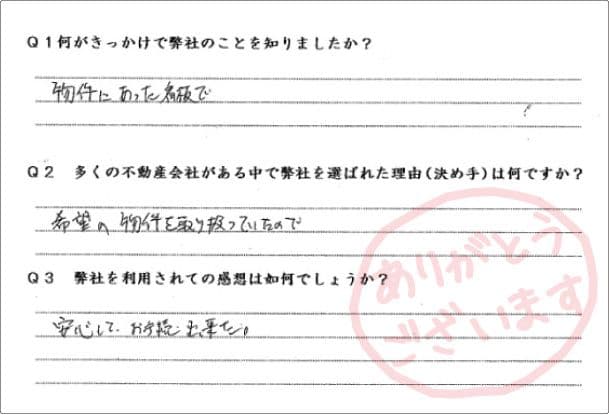 Q1何がきっかけで弊社のことを知りましたか？
物件にあった看板で
Q2 多くの不動産会社がある中で弊社を選ばれた理由(決め手)は何ですか？
希望の物件を取り扱っていたので
Q3 弊社を利用されての感想は如何でしょうか？
安心して、お手続き出来た。
ありがとう
ございます